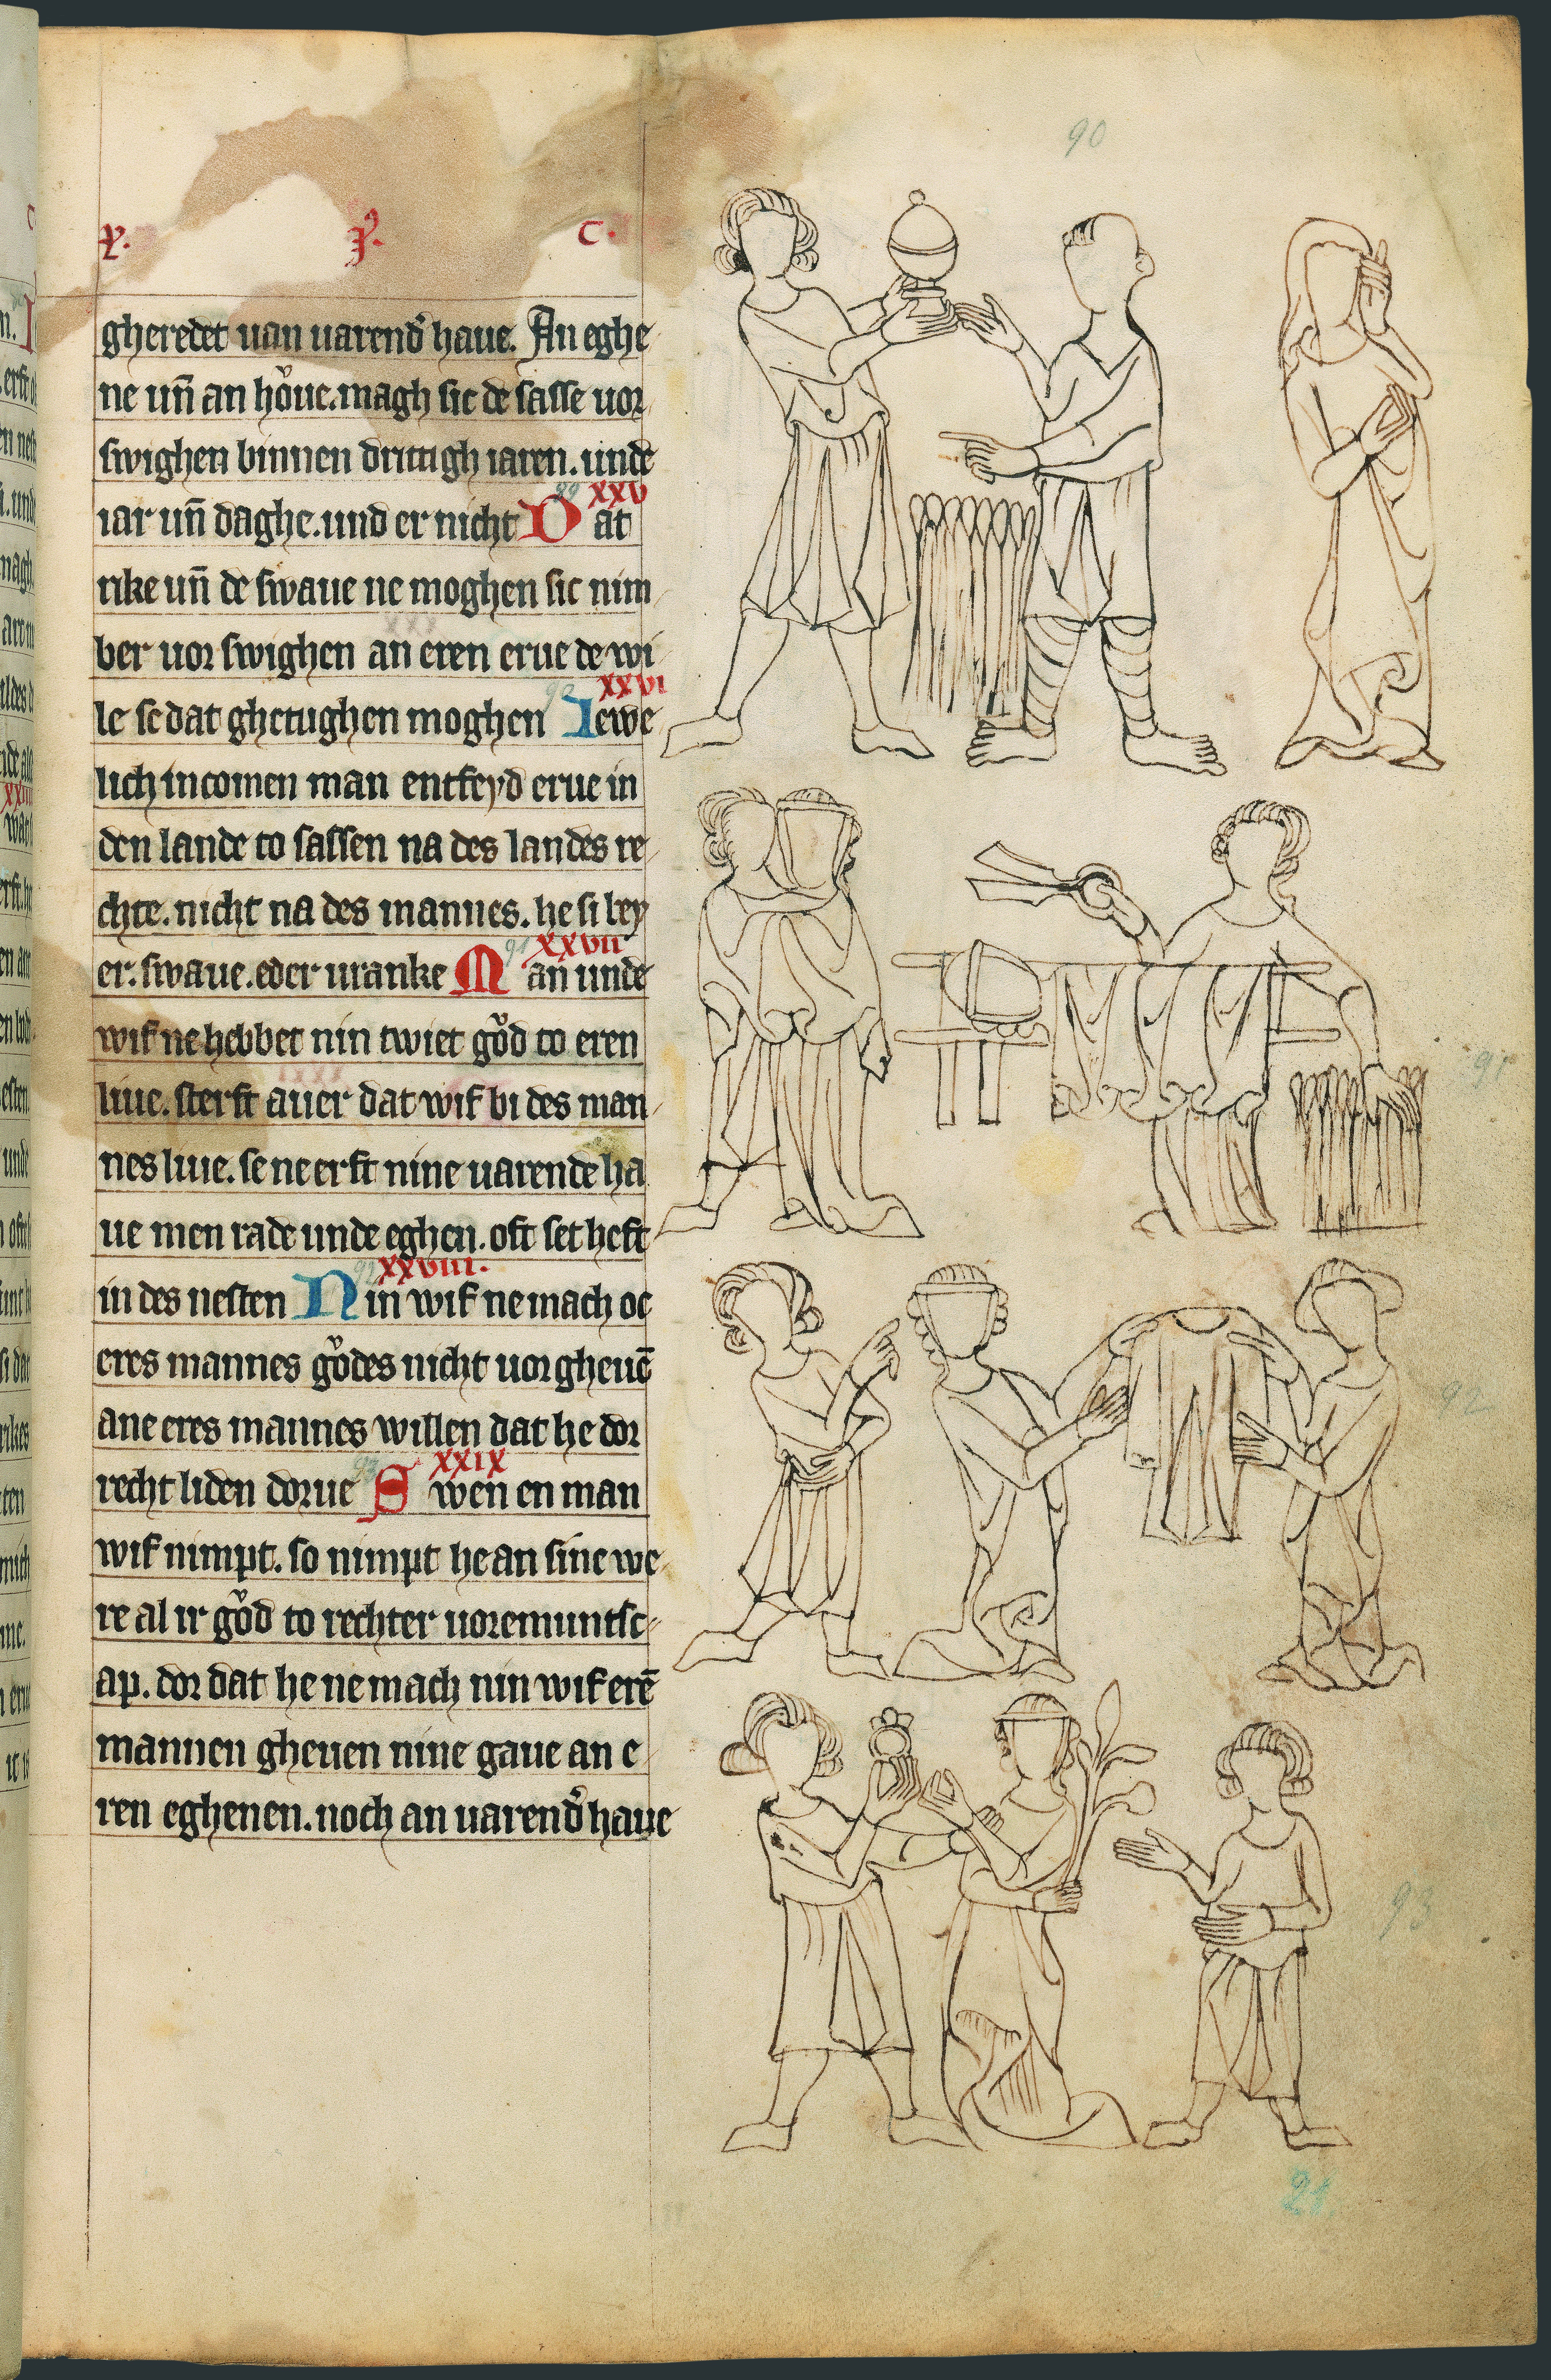 X. P. C.
gheredet uan uarend͛ haue. An eghe
ne un̄ an hoͮue. magh sic de sasse uor
swighen binnen drittigh iaren. unde
XXV
iar un̄ daghe. und er nicht Dat
rike un̄ de swaue ne moghen sic nim
ber uor swighen an eren erue de wi
XXVI
le se dat ghetughen moghen Iewe
lich incomen man entfeyd erue in
den lande to sassen na des landes re
chte. nicht na des mannes. he si bey
XXVII
er. swaue. eder uranke Man unde
wif ne hebbet nin twiet goͮd to eren
liue. sterft auer dat wif bi des man
nes liue. se ne erft nine uarende ha
ue men rade unde eghen. oft set heft
XXVIII.
in des nesten Nin wif ne mach oc
eres mannes goͮdes nicht uor gheuē
ane eres mannes willen dat he dor
XXIX
recht liden dorue Swen en man
wif nimpt. so nimpt he an sine we
re al ir goͮd to rechter uoremuntsc
ap. dor dat he ne mach nin wif erē
mannen gheuen nine gaue an e
ren eghenen. noch an uarend͛ haue
90
91
92
93
21